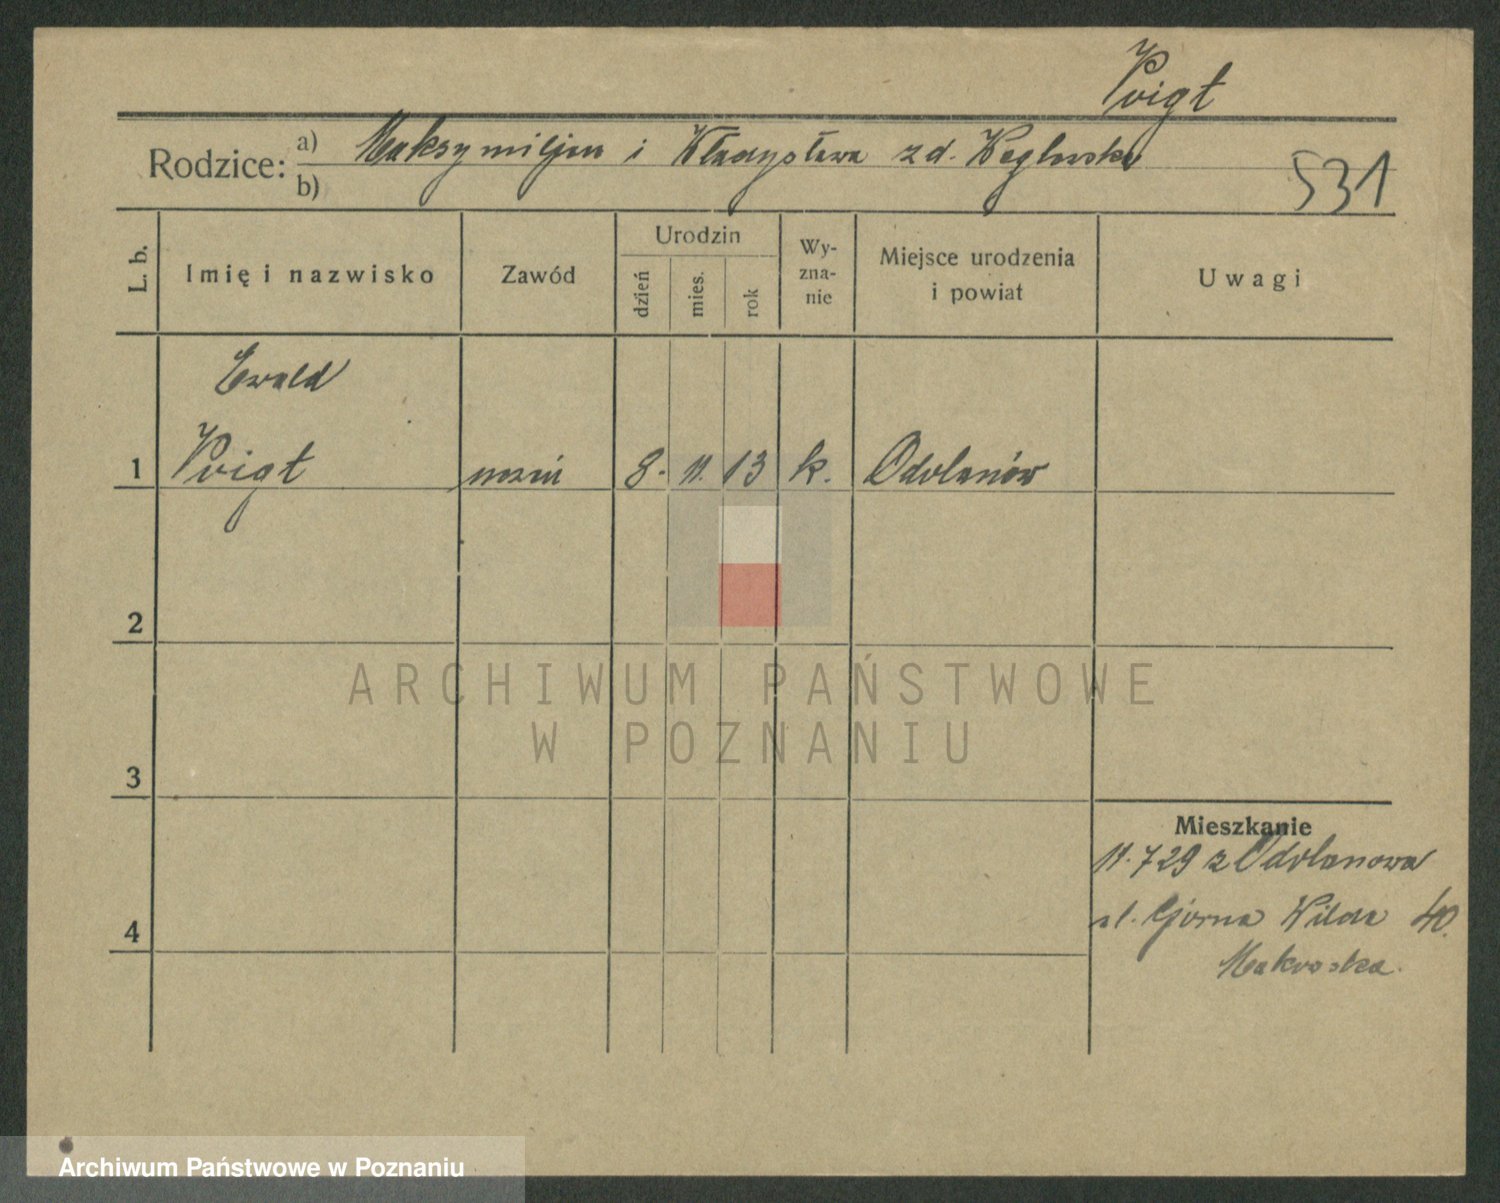 Voigt
Rodzice: a) Maksymiljan i Władysława zd. Węglewska
b)
531
L. b.
Imię i nazwisko
Zawód
Urodzin
dzień
mies.
rok
Wy-
zna-
nie
Miejsce urodzenia
i powiat
Uwagi
Ewald
1 Voigt uczeń 8. 11. 13 k. Odolanów
2
3
4
Mieszkanie
11.729 z Odolanowa
ul. Górna Wilda 40.
ARCHIWUM PAŃSTWOWE
W POZNANIU
Archiwum Państwowe w Poznaniu